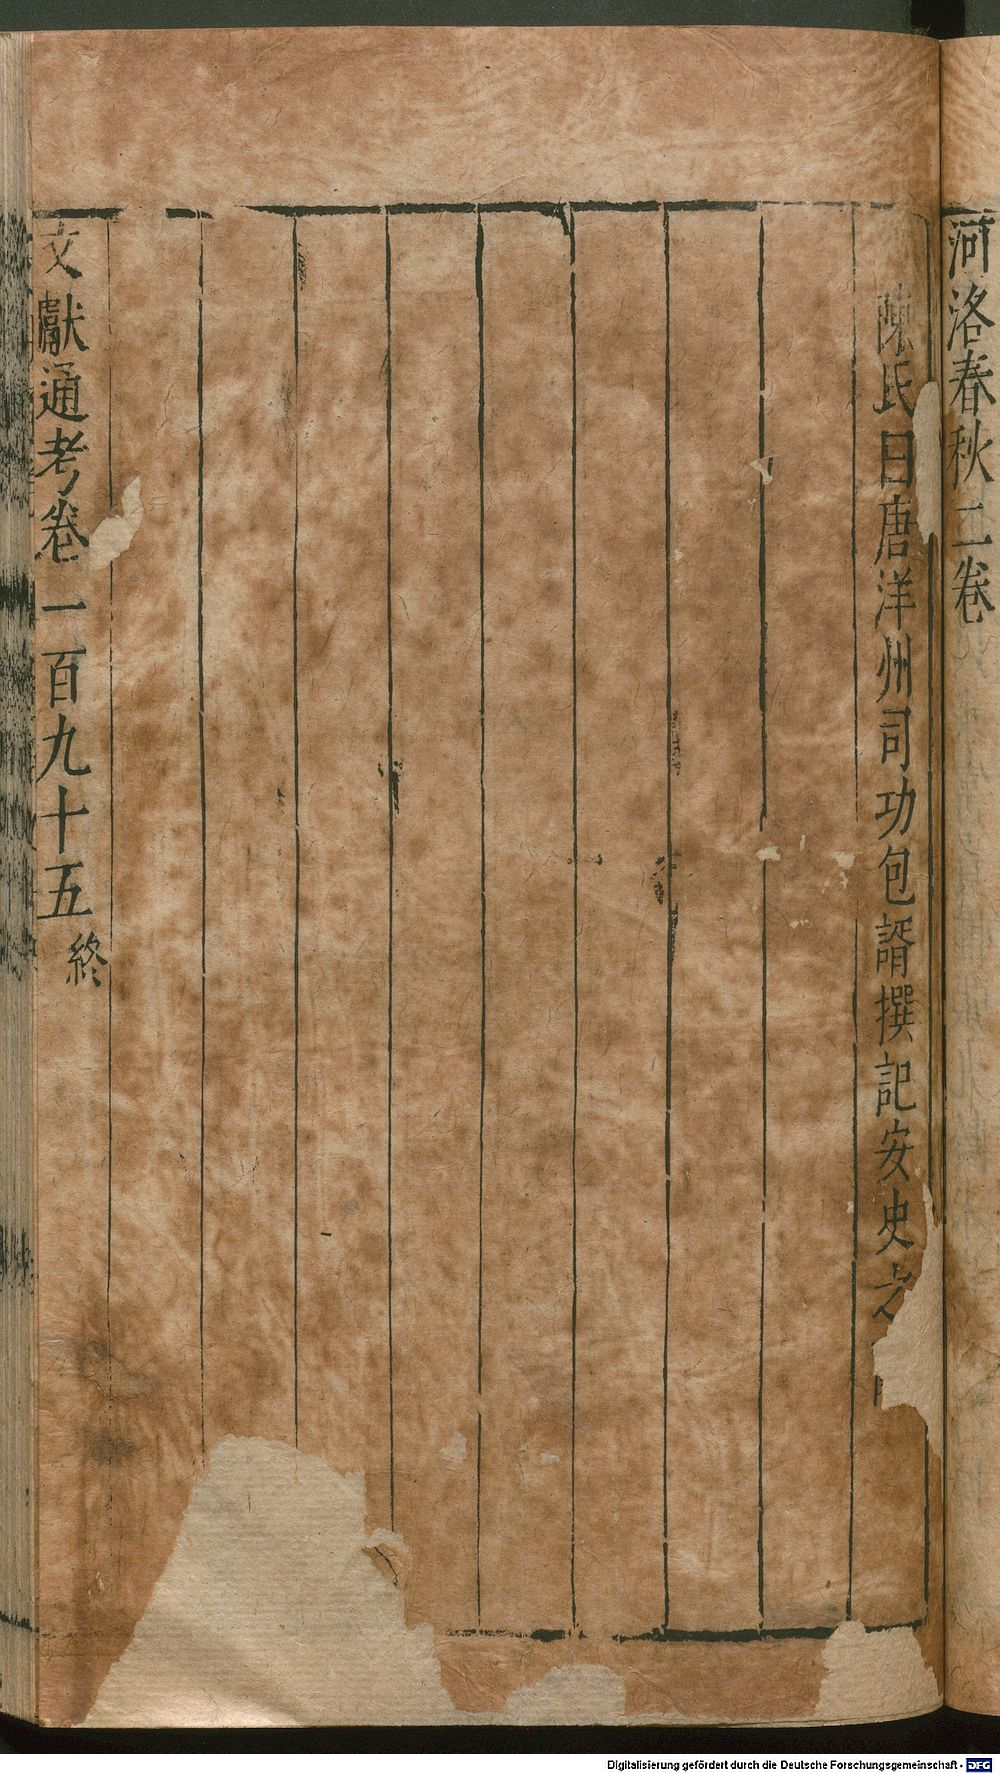 河洛春秋二卷
陳氏曰唐洋州司功包諝撰記安史之
文獻通考卷一百九十五終
Digitalisierung gefördert durch die Deutsche Forschungsgemeinschaft - DFG